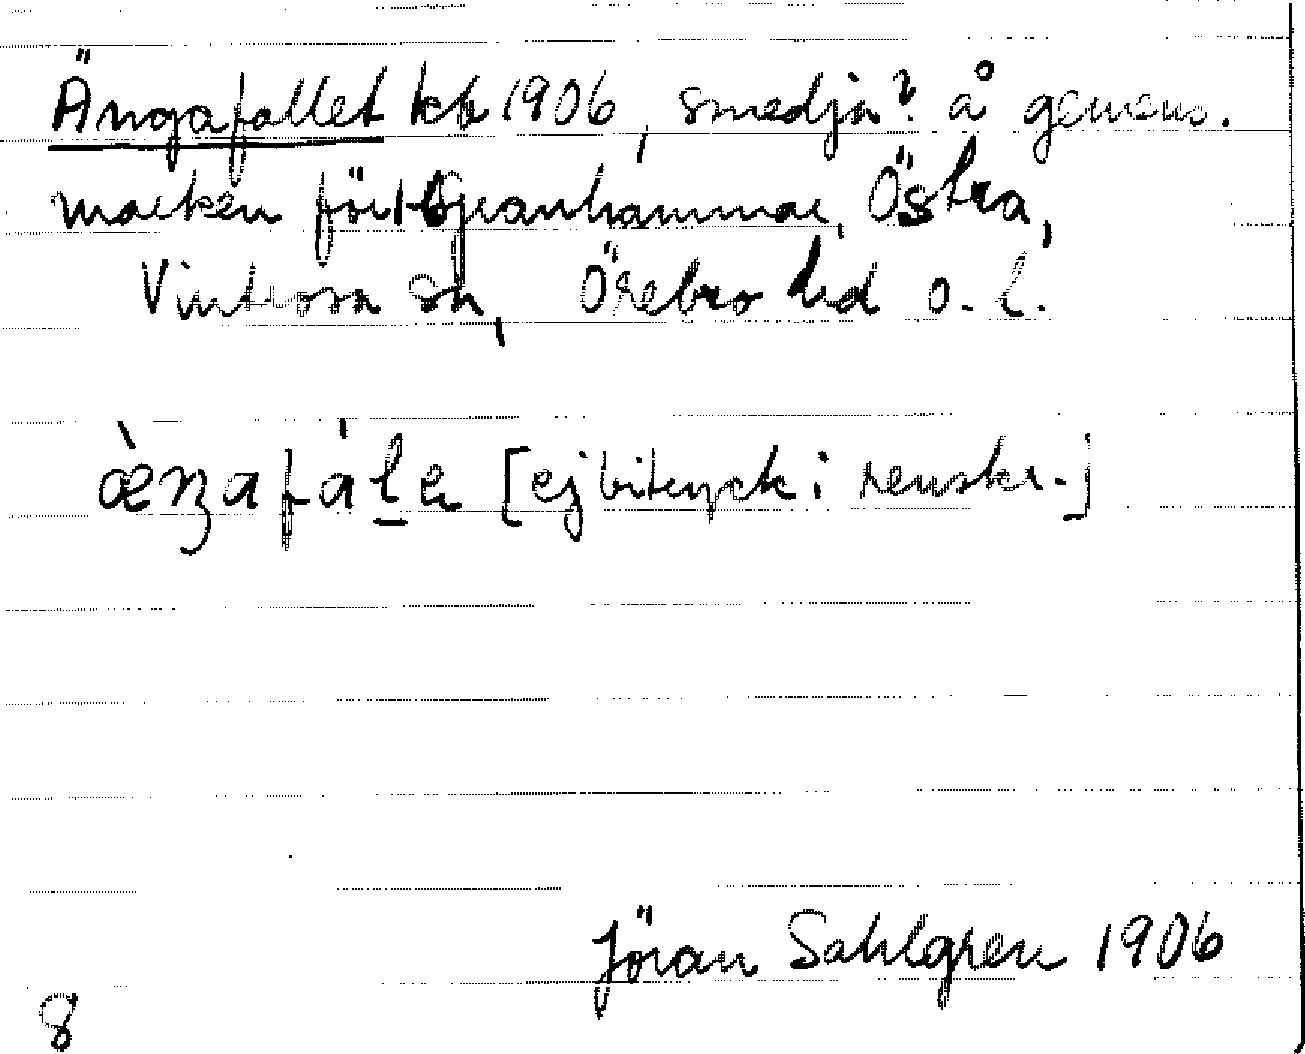 Ängafallet kb 1906, smedja? å gemens.
marken för Granhammar, Östra,
Vintrosa sn, Örebro hd ö. l.
æ̀ŋafále [ej bitryck i renskr.]
Jöran Sahlgren 1906
8